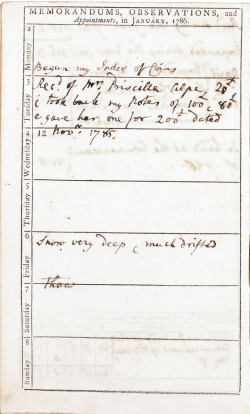 MEMORANDUMS, OBSERVATIONS, and
Appointments, in JANUARY, 1786.
2 Monday
Begun my Index of Coins
3 Tuesday
Rec.d of Mrs. Priscilla Alpe, 20£
& took back my Notes of 100£ & 80£
& gave her one for 200£ dated
4 Wednesday
12 Novr. 1785.
5 Thursday
6 Friday
Snow very deep & much drifted
7 Saturday
Thaw
8 Sunday